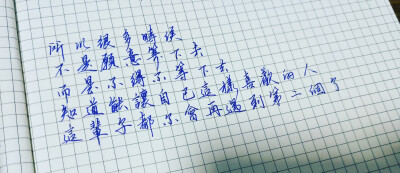 所以很多時候
不是願意等下去
而是不得不等下去
知道能讓自己這樣喜歡的人
這輩子都不會再遇到第二個了